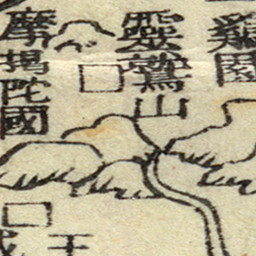 雞園
靈鷲山
摩揭陀國
王